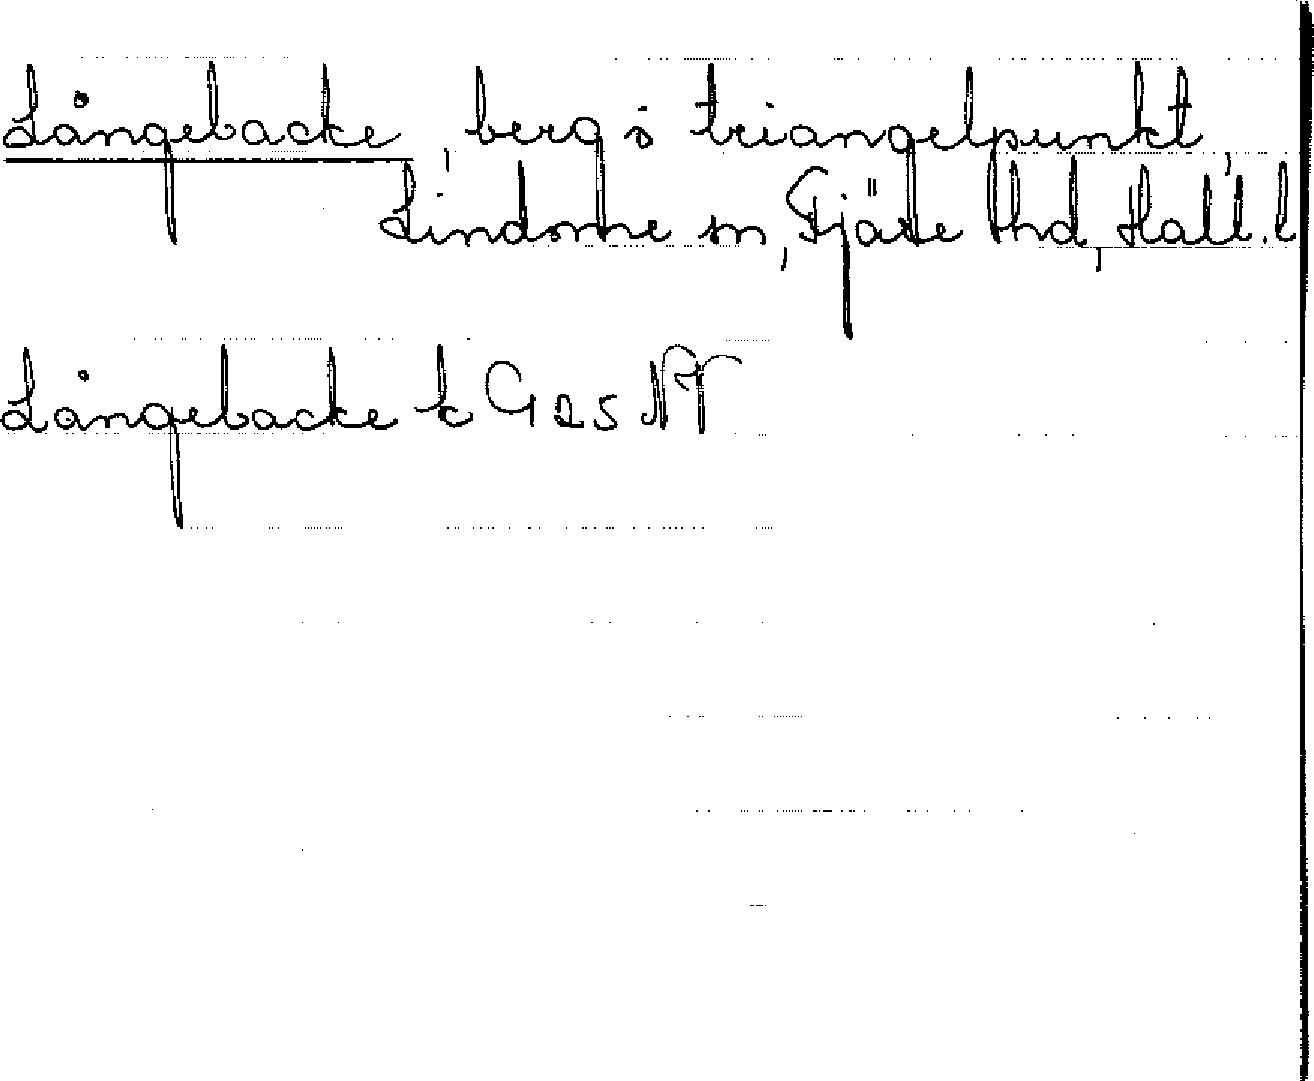 Långebacke, berg ö triangelpunkt,
Lindome sn, Fjäre hd, Hall. l
Långebacke k G 25 NV